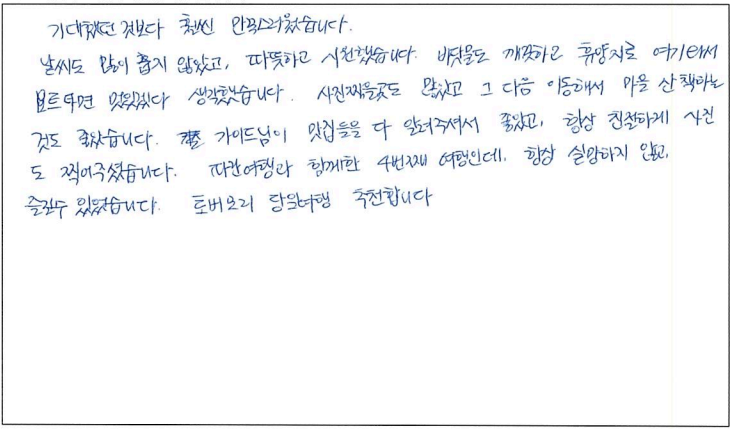 기대했던 것보다 훨씬 만족스러웠습니다.
날씨도 많이 춥지 않았고, 따뜻하고 시원했습니다. 바닷물도 깨끗하고 휴양지로 여기에서
요트타면 멋있겠다 생각했습니다. 사진찍을곳도 많았고 그 다음 이동해서 마을 산책하는
것도 좋았습니다. 가이드님이 맛집들을 다 알려주셔서 좋았고, 항상 친절하게 사진
도 찍어주셨습니다. 따칸여행과 함께한 4번째 여행인데, 항상 실망하지 않고,
즐길수 있었습니다. 토버모리 당일여행 추천합니다